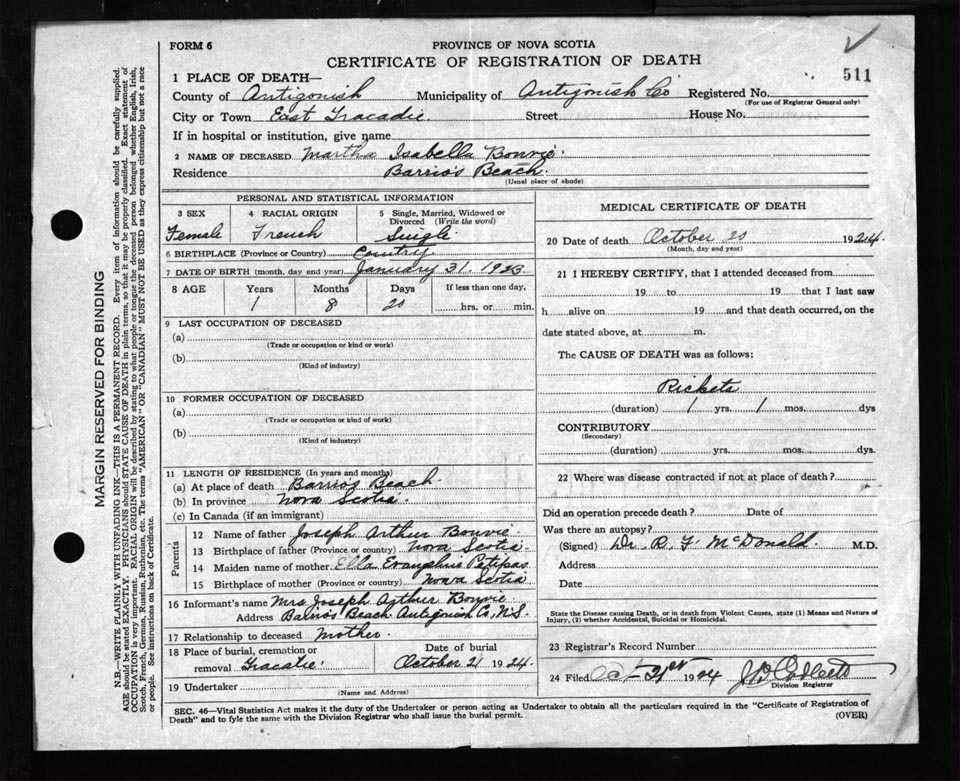 FORM 6
PROVINCE OF NOVA SCOTIA
CERTIFICATE OF REGISTRATION OF DEATH
511
1 PLACE OF DEATH—
County of Antigonish Municipality of Antigonish Co Registered No.
(For use of Registrar General only)
City or Town East Tracadie Street House No.
If in hospital or institution, give name
2 NAME OF DECEASED Martha Isabella Bonvie.
Residence Barrio's Beach.
(Usual place of abode)
PERSONAL AND STATISTICAL INFORMATION
3 SEX 4 RACIAL ORIGIN 5 Single, Married, Widowed or
Divorced (Write the word)
Female French Single
6 BIRTHPLACE (Province or Country) Country
7 DATE OF BIRTH (month, day and year) January 31. 1923
8 AGE Years Months Days If less than one day,
1 8 20 hrs. or min.
9 LAST OCCUPATION OF DECEASED
(a)
(Trade or occupation or kind or work)
(b)
(Kind of industry)
10 FORMER OCCUPATION OF DECEASED
(a)
(Trade or occupation or kind of work)
(b)
(Kind of industry)
11 LENGTH OF RESIDENCE (In years and months)
(a) At place of death Barrios Beach.
(b) In province Nova Scotia.
(c) In Canada (if an immigrant)
Parents
12 Name of father Joseph Arthur Bonvie
13 Birthplace of father (Province or country) Nova Scotia.
14 Maiden name of mother Ella Petipas
15 Birthplace of mother (Province or country) Nova Scotia
16 Informant's name Mrs Joseph Arthur Bonvie
Address Barrio's Beach Antigonish Co, N.S.
17 Relationship to deceased Mother.
18 Place of burial, cremation or Date of burial
removal Tracadie. October 21 1924.
19 Undertaker
(Name and Address)
MEDICAL CERTIFICATE OF DEATH
20 Date of death October 20 1924.
(Month, day and year)
21 I HEREBY CERTIFY, that I attended deceased from
19 to 19 that I last saw
h alive on 19 and that death occurred, on the
date stated above, at m.
The CAUSE OF DEATH was as follows:
Rickets
(duration) 1 yrs. 1 mos. dys
CONTRIBUTORY
(Secondary)
(duration) yrs. mos. dys.
22 Where was disease contracted if not at place of death?
Did an operation precede death? Date of
Was there an autopsy?
(Signed) Dr. R. F McDonald. M.D.
Address
Date
State the Disease causing Death, or in death from Violent Causes, state (1) Means and Nature of
Injury, (2) whether Accidental, Suicidal or Homicidal.
23 Registrar's Record Number
24 Filed Oct 21st 1924
Division Registrar
SEC. 46—Vital Statistics Act makes it the duty of the Undertaker or person acting as Undertaker to obtain all the particulars required in the "Certificate of Registration of
Death" and to fyle the same with the Division Registrar who shall issue the burial permit.
(OVER)
MARGIN RESERVED FOR BINDING
N.B.—WRITE PLAINLY WITH UNFADING INK—THIS IS A PERMANENT RECORD. Every item of information should be carefully supplied.
AGE should be stated EXACTLY. PHYSICIANS should STATE CAUSE OF DEATH in plain terms, so that it may be properly classified. Exact statement of
OCCUPATION is very important. RACIAL ORIGIN will be described by stating to what people or tongue the deceased person belonged whether English, Irish,
Scotch, French, German, Russian, Ruthenian, etc. The terms "AMERICAN" OR "CANADIAN" MUST NOT BE USED as they express citizenship but not a race
or people. See instructions on back of Certificate.